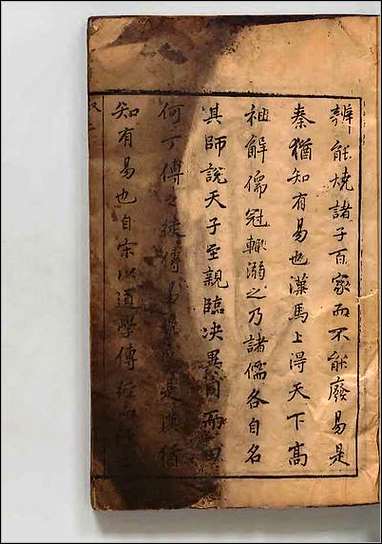 辨能燒諸子百家而不能廢易是
秦猶知有易也漢馬上得天下高
祖解儒冠輙溺之乃諸儒各自名
其師說天子至親臨决異同而田
何丁傅之徒傳易 是漢猶
知有易也自宋以道學傳